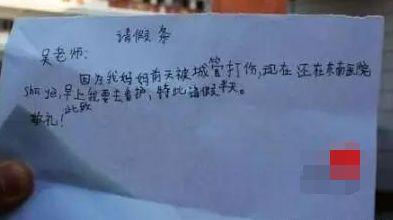 请假条
吴老师：
因为我妈妈前天被城管打伤，现在还在东南医院
shu ye，早上我要去看护，特此请假半天。
此致
敬礼！